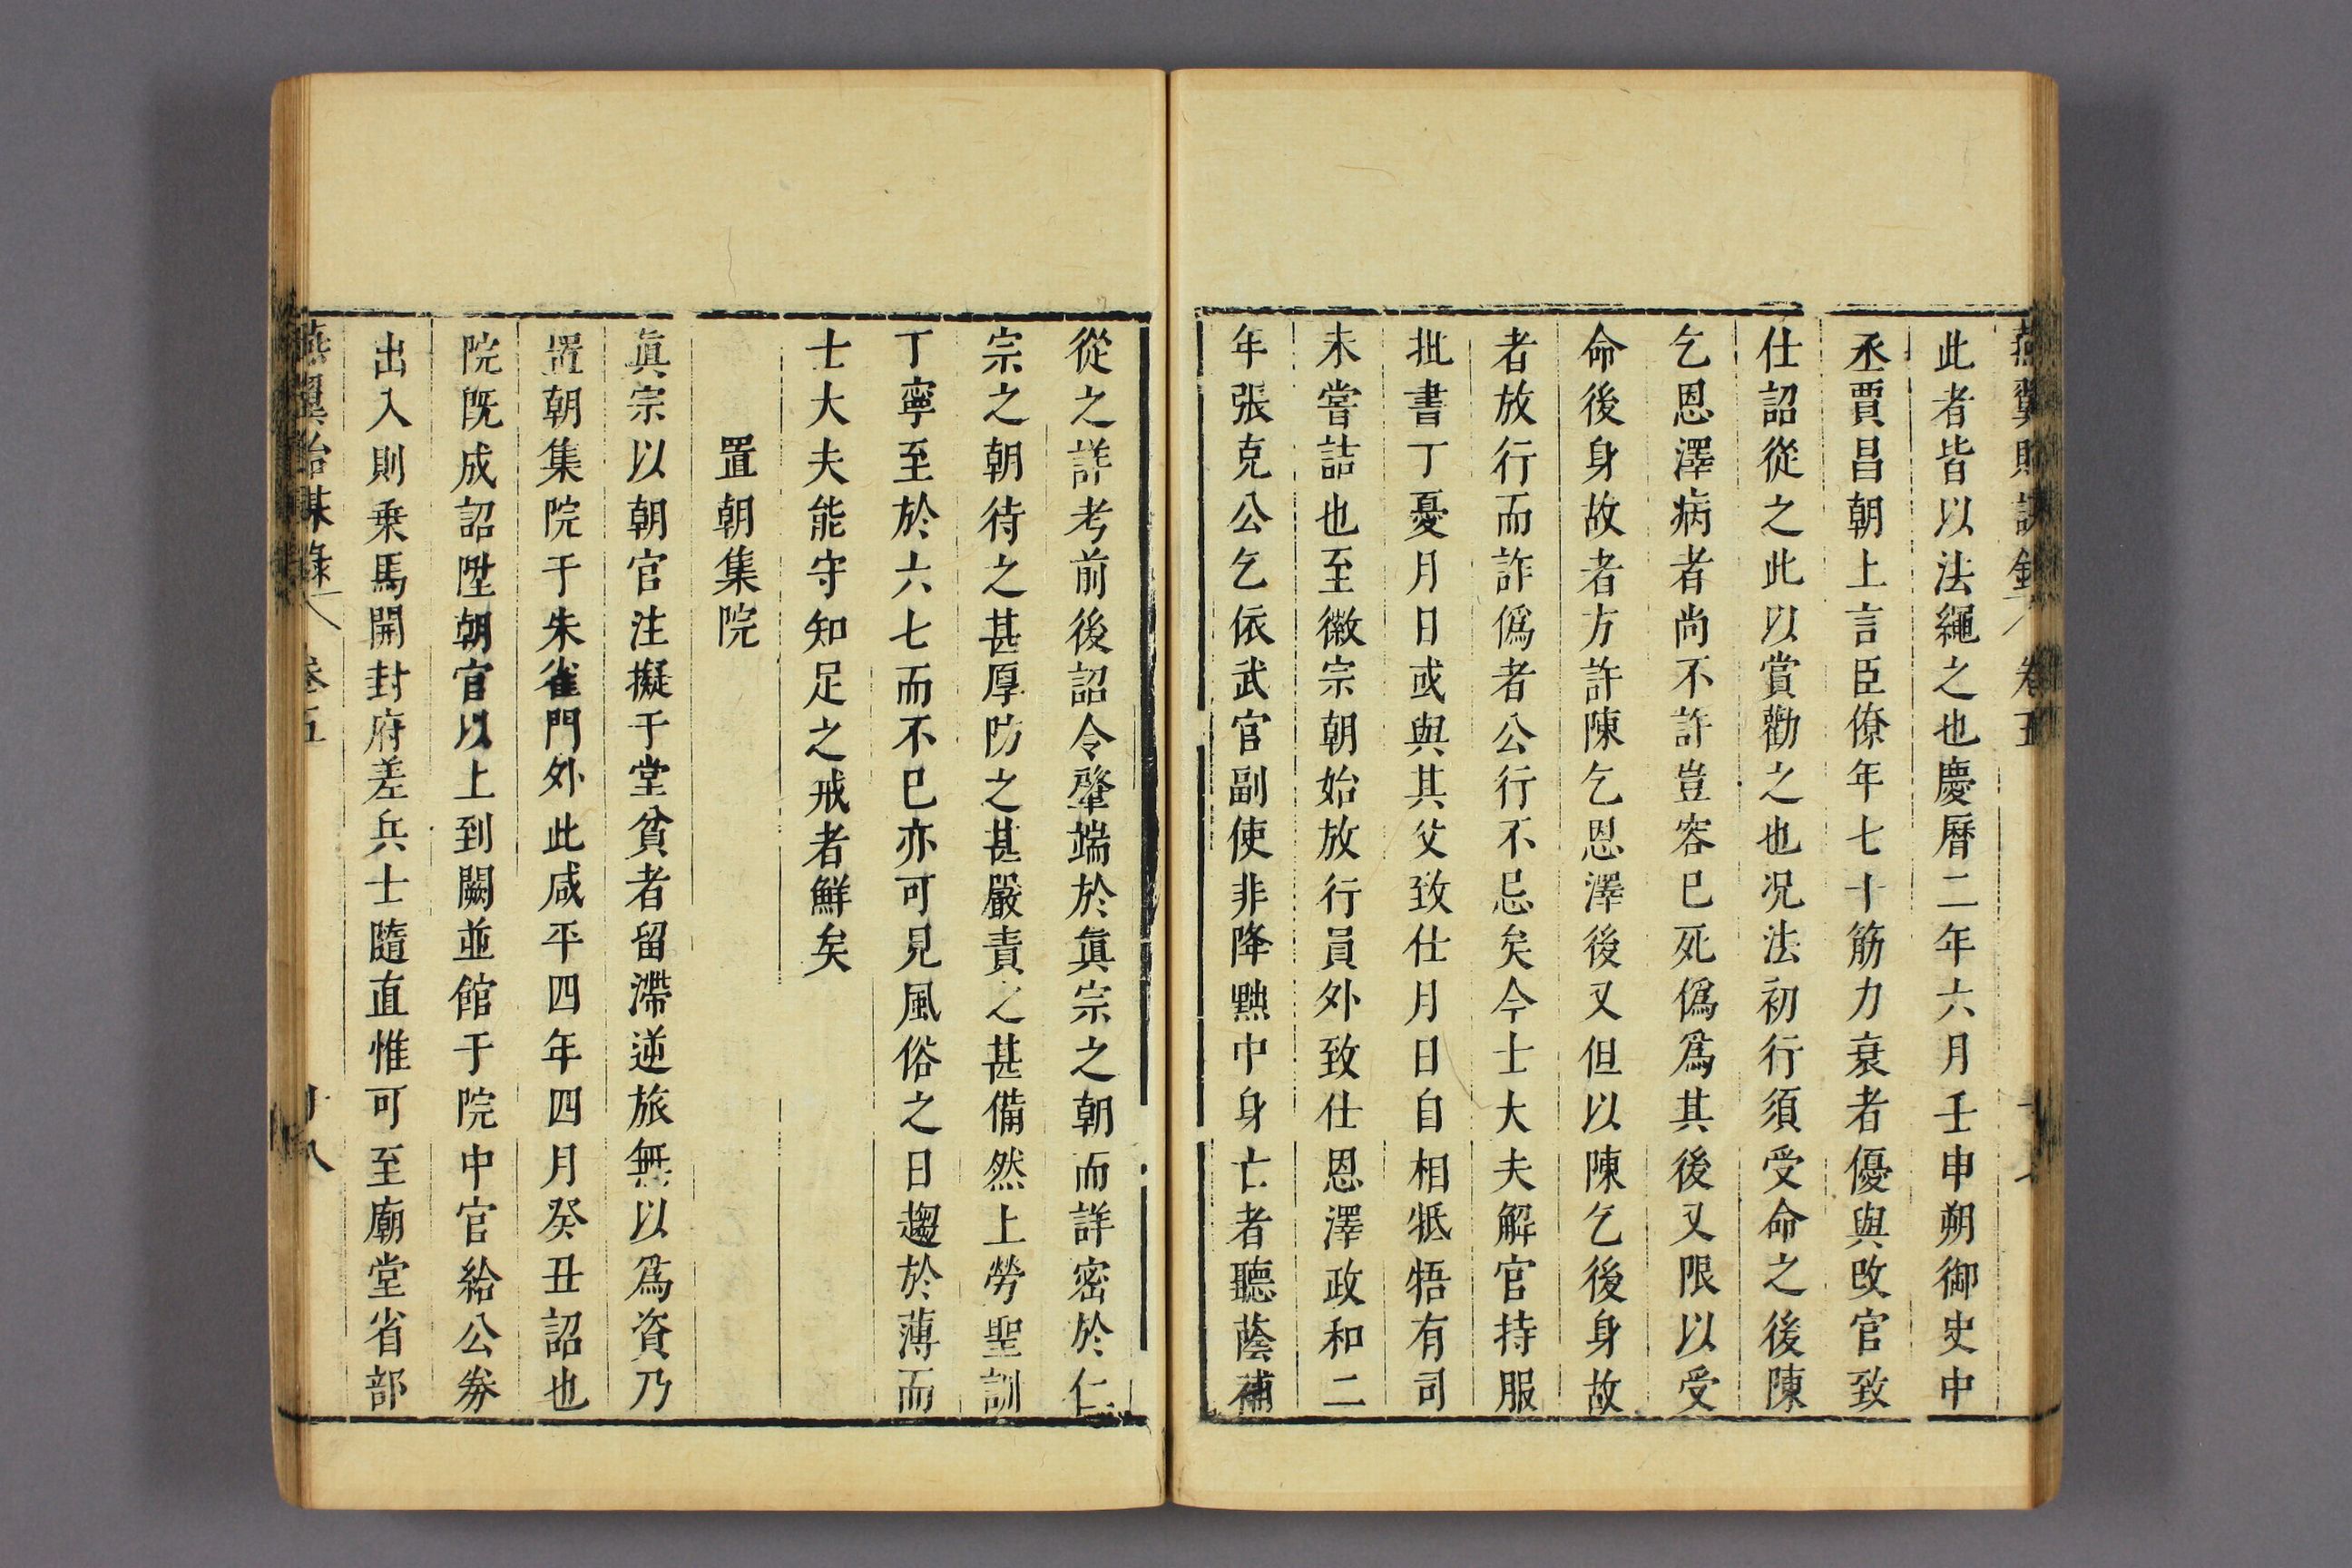 燕翼貽謀錄 卷五
此者皆以法繩之也慶曆二年六月壬申朔御史中
丞賈昌朝上言臣僚年七十筋力衰者優與改官致
仕詔從之此以賞勸之也况法初行須受命之後陳
乞恩澤病者尚不許豈容巳死僞爲其後又限以受
命後身故者方許陳乞恩澤後又但以陳乞後身故
者放行而詐僞者公行不忌矣今士大夫解官持服
批書丁憂月日或與其父致仕月日自相牴牾有司
未嘗詰也至徽宗朝始放行員外致仕恩澤政和二
年張克公乞依武官副使非降黜中身亡者聽蔭補
從之詳考前後詔令肇端於眞宗之朝而詳密於仁
宗之朝待之甚厚防之甚嚴責之甚備然上勞聖訓
丁寧至於六七而不巳亦可見風俗之日趨於薄而
士大夫能守知足之戒者鮮矣
置朝集院
眞宗以朝官注擬于堂貧者留滯逆旅無以爲資乃
置朝集院于朱雀門外此咸平四年四月癸丑詔也
院旣成詔陞朝官以上到闕並館于院中官給公劵
出入則乗馬開封府差兵士隨直惟可至廟堂省部
燕翼貽謀錄 卷五 十八